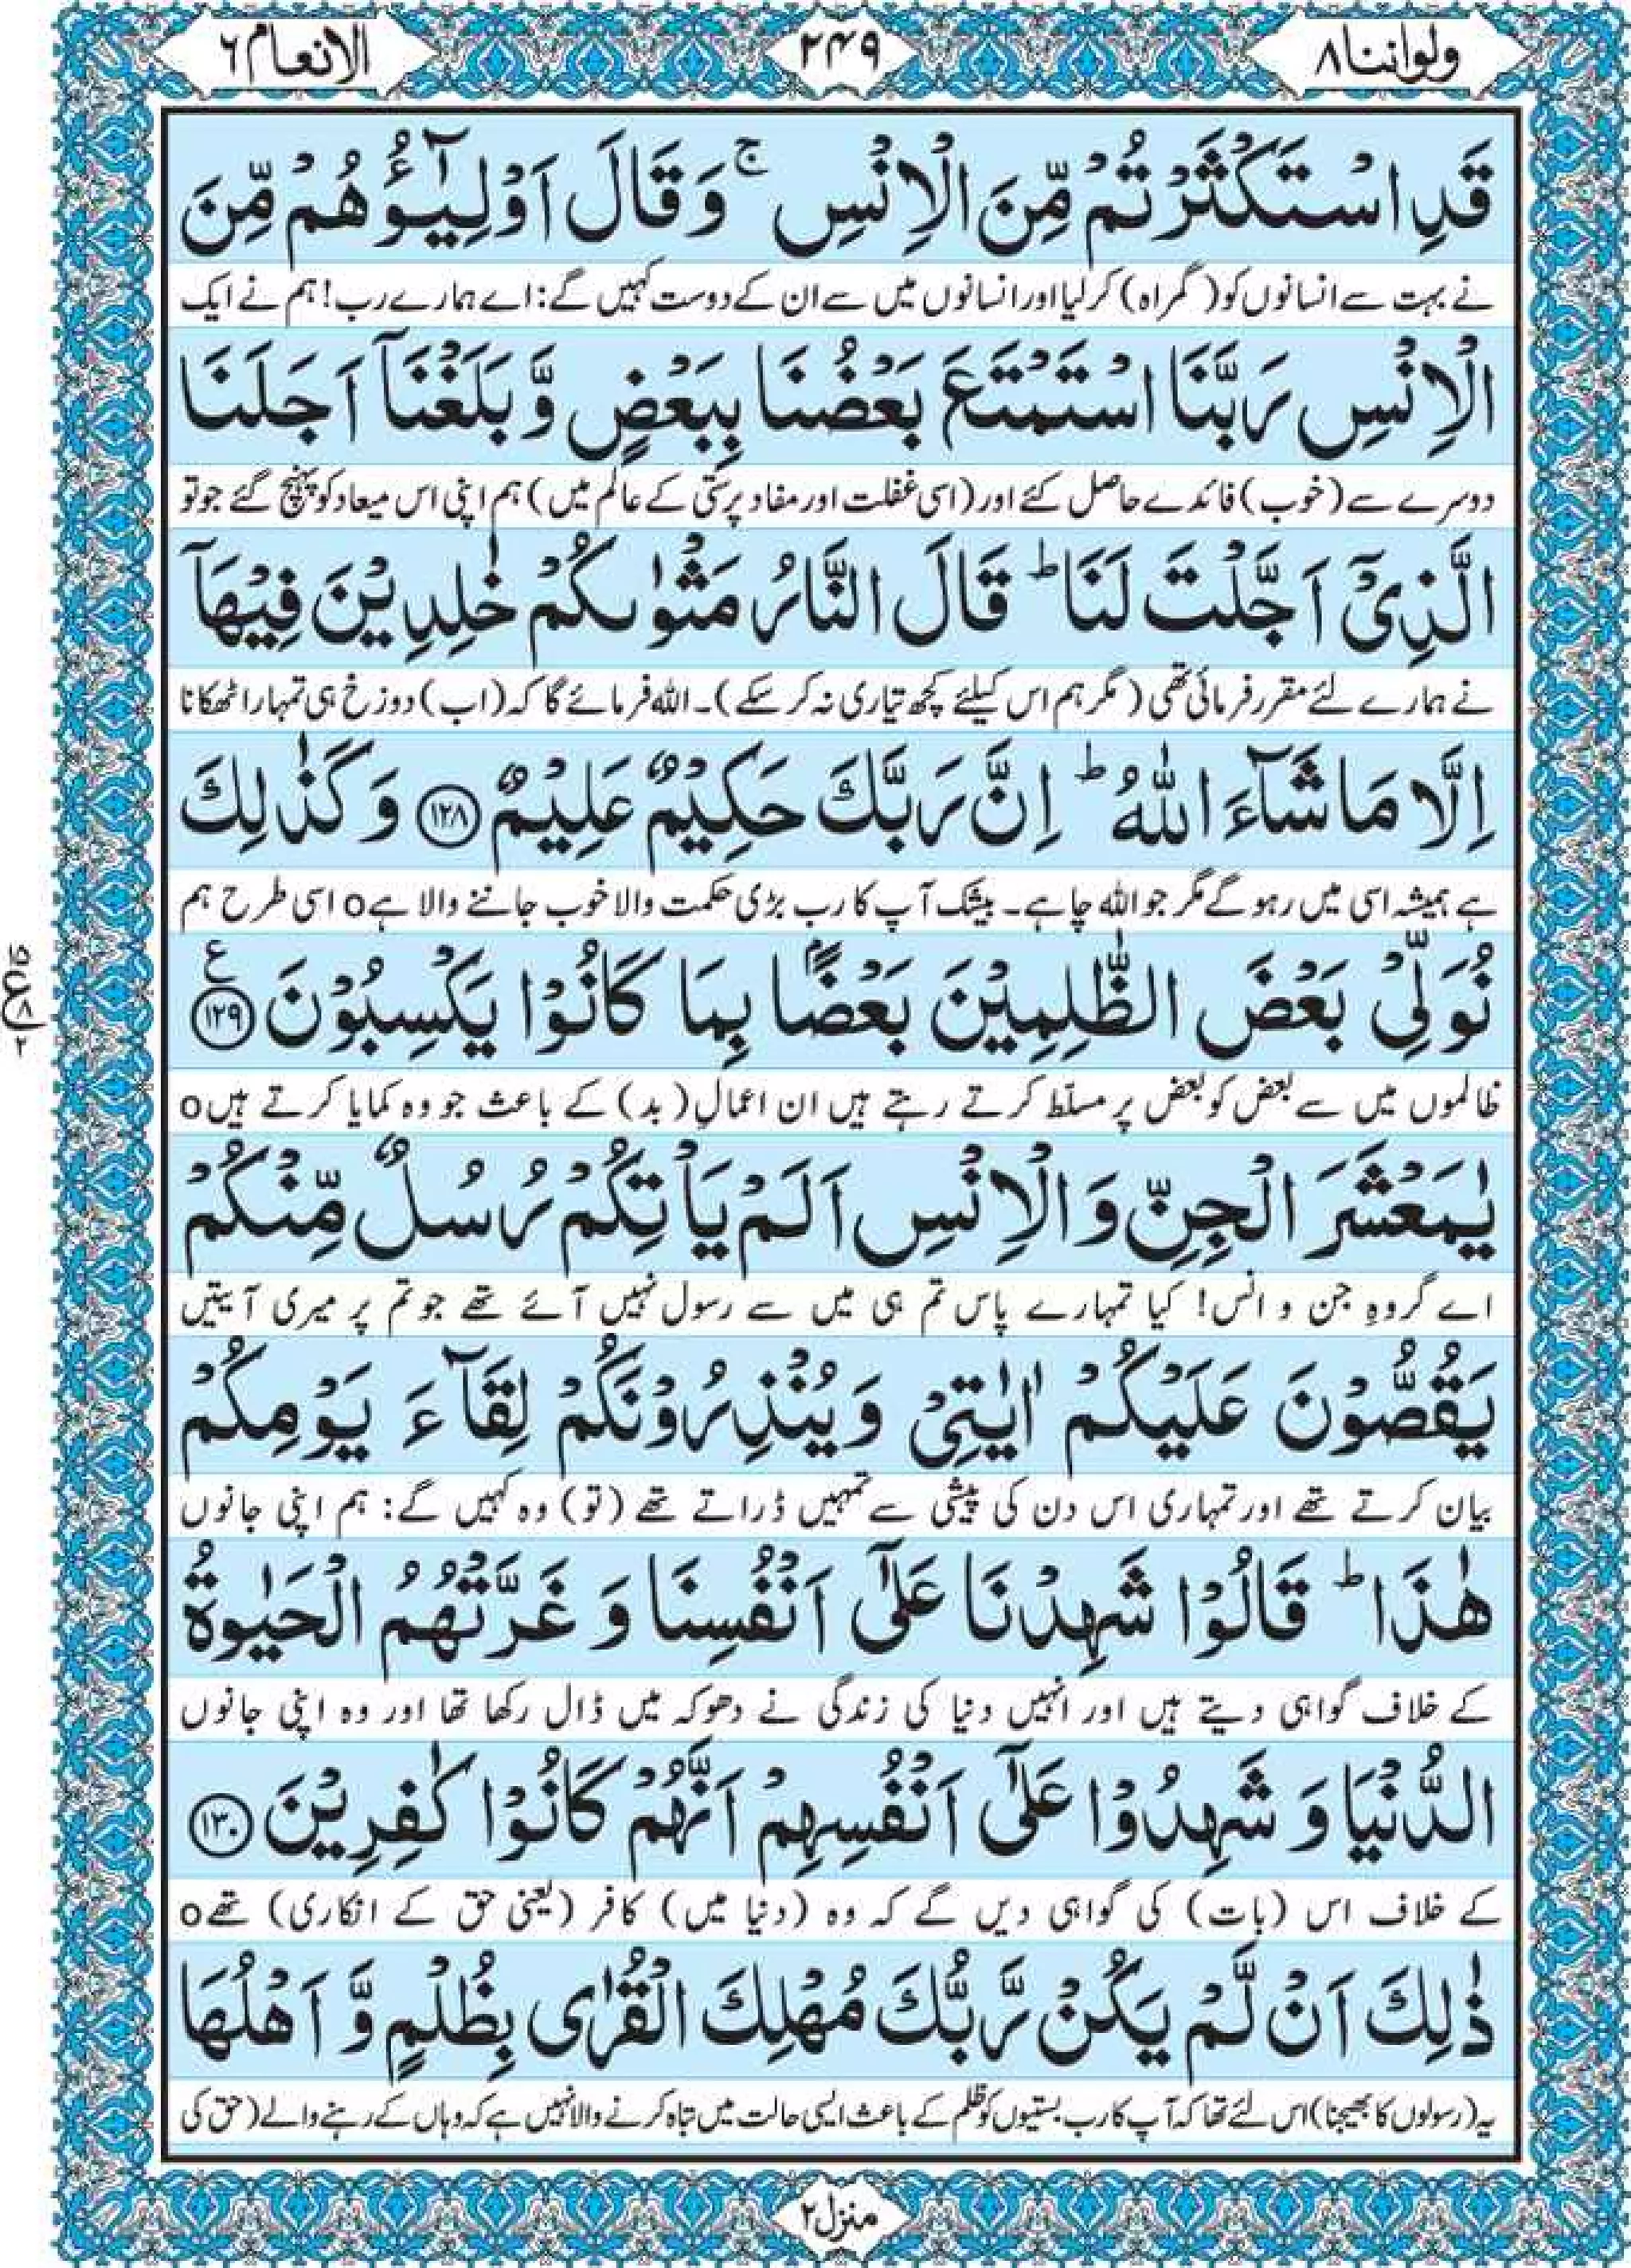 ولواننا ٨
٢٤٩
الانعام ٦
قَدِ اسْتَكْثَرْتُمْ مِّنَ الْاِنْسِ ۚ وَقَالَ اَوْلِيٰٓـؤُهُمْ مِّنَ
نے بہت سے انسانوں کو (گمراہ) کر لیا اور انسانوں میں سے ان کے دوست کہیں گے: اے ہمارے رب! ہم نے ایک
الْاِنْسِ رَبَّنَا اسْتَمْتَعَ بَعْضُنَا بِبَعْضٍ وَّ بَلَغْنَاۤ اَجَلَنَا
دوسرے سے (خوب) فائدے حاصل کئے اور (اسی غفلت اور مفاد پرستی کے عالم میں) ہم اپنی اس میعاد کو پہنچ گئے جو تو
الَّذِیْۤ اَجَّلْتَ لَنَا ؕ قَالَ النَّارُ مَثْوٰىكُمْ خٰلِدِیْنَ فِیْهَاۤ
نے ہمارے لئے مقرر فرمائی تھی (مگر ہم اس کیلئے کچھ تیاری نہ کر سکے)۔ اللہ فرمائے گا کہ (اب) دوزخ ہی تمہارا ٹھکانا
اِلَّا مَا شَآءَ اللّٰهُ ؕ اِنَّ رَبَّكَ حَكِیْمٌ عَلِیْمٌ ﴿۱۲۸﴾ وَ كَذٰلِكَ
ہے ہمیشہ اسی میں رہو گے مگر جو اللہ چاہے۔ بیشک آپ کا رب بڑی حکمت والا خوب جاننے والا ہے o اسی طرح ہم
نُوَلِّیْ بَعْضَ الظّٰلِمِیْنَ بَعْضًۢا بِمَا كَانُوْا یَكْسِبُوْنَ ﴿۱۲۹﴾ ع
ظالموں میں سے بعض کو بعض پر مسلّط کرتے رہتے ہیں ان اعمالِ (بد) کے باعث جو وہ کمایا کرتے ہیں o
یٰمَعْشَرَ الْجِنِّ وَ الْاِنْسِ اَلَمْ یَاْتِكُمْ رُسُلٌ مِّنْكُمْ
اے گروہِ جن و انس! کیا تمہارے پاس تم ہی میں سے رسول نہیں آئے تھے جو تم پر میری آیتیں
یَقُصُّوْنَ عَلَیْكُمْ اٰیٰتِیْ وَ یُنْذِرُوْنَكُمْ لِقَآءَ یَوْمِكُمْ
بیان کرتے تھے اور تمہاری اس دن کی پیشی سے تمہیں ڈراتے تھے (تو) وہ کہیں گے: ہم اپنی جانوں
هٰذَا ؕ قَالُوْا شَهِدْنَا عَلٰۤی اَنْفُسِنَا وَ غَرَّتْهُمُ الْحَیٰوةُ
کے خلاف گواہی دیتے ہیں اور انہیں دنیا کی زندگی نے دھوکہ میں ڈال رکھا تھا اور وہ اپنی جانوں
الدُّنْیَا وَ شَهِدُوْا عَلٰۤی اَنْفُسِهِمْ اَنَّهُمْ كَانُوْا كٰفِرِیْنَ ﴿۱۳۰﴾
کے خلاف اس (بات) کی گواہی دیں گے کہ وہ (دنیا میں) کافر (یعنی حق کے انکاری) تھے o
ذٰلِكَ اَنْ لَّمْ یَكُنْ رَّبُّكَ مُهْلِكَ الْقُرٰی بِظُلْمٍ وَّ اَهْلُهَا
یہ (رسولوں کا بھیجنا) اس لئے تھا کہ آپ کا رب بستیوں کو ظلم کے باعث ایسی حالت میں تباہ کرنے والا نہیں ہے کہ وہاں کے رہنے والے (حق کی
منزل ٢